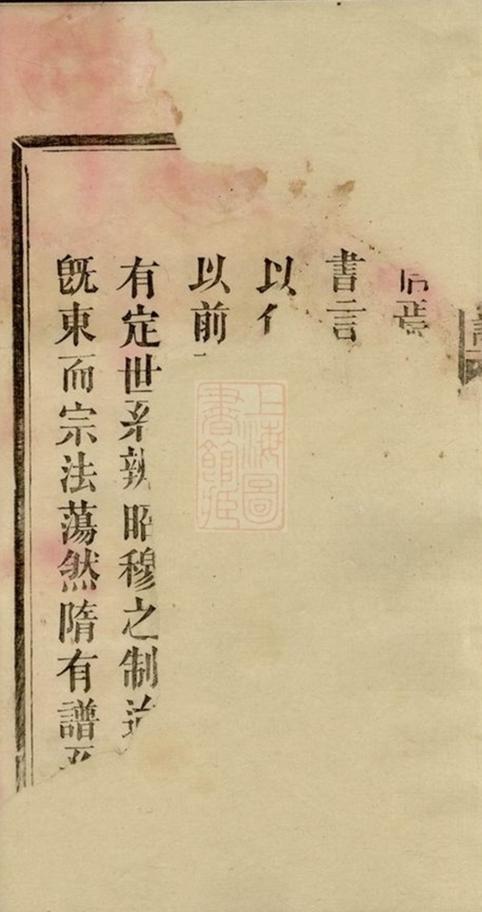 書言
以
以前
有定世系孰昭穆之制
既東而宗法蕩然隋有譜
上海圖書館藏